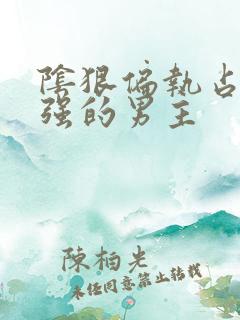 陰狠偏執占
强的男主
陳柏光
未任同意禁止转载